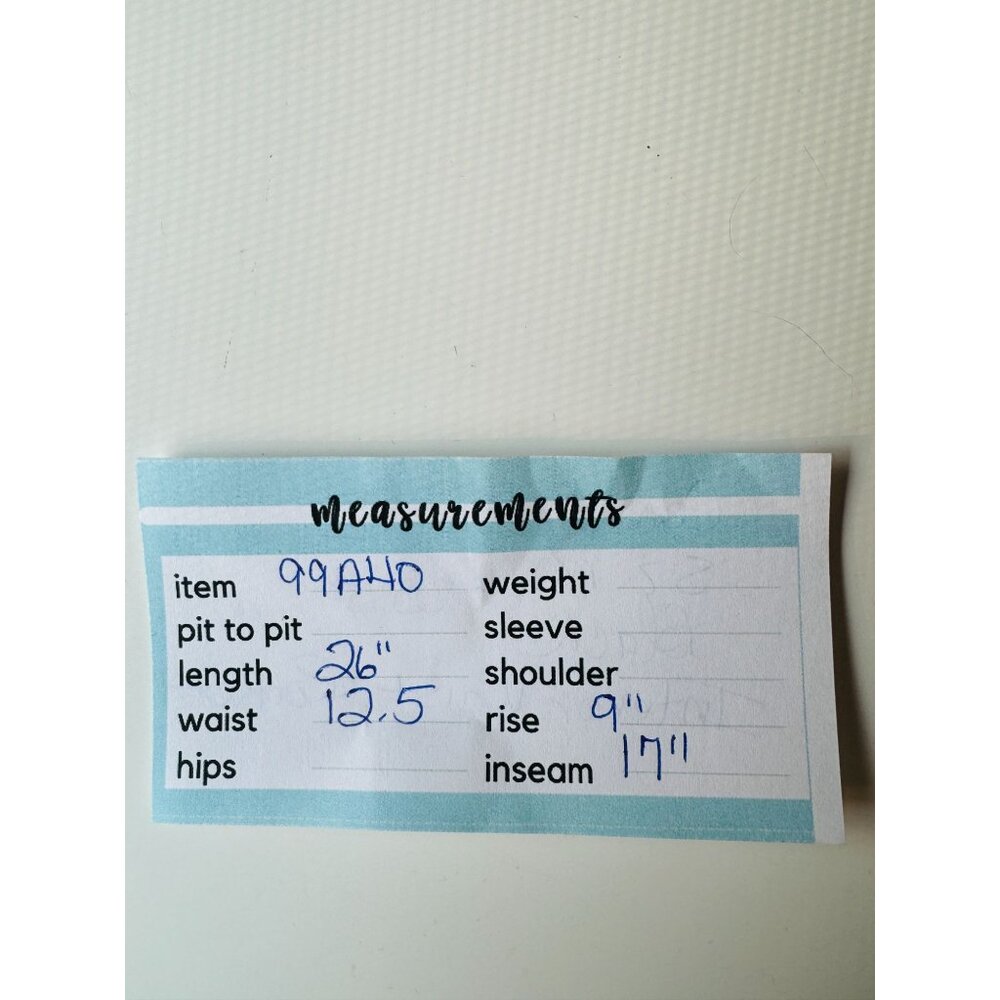 measurements
item 99A40 weight
pit to pit sleeve
length 26" shoulder
waist 12.5 rise 9"
hips inseam 17"